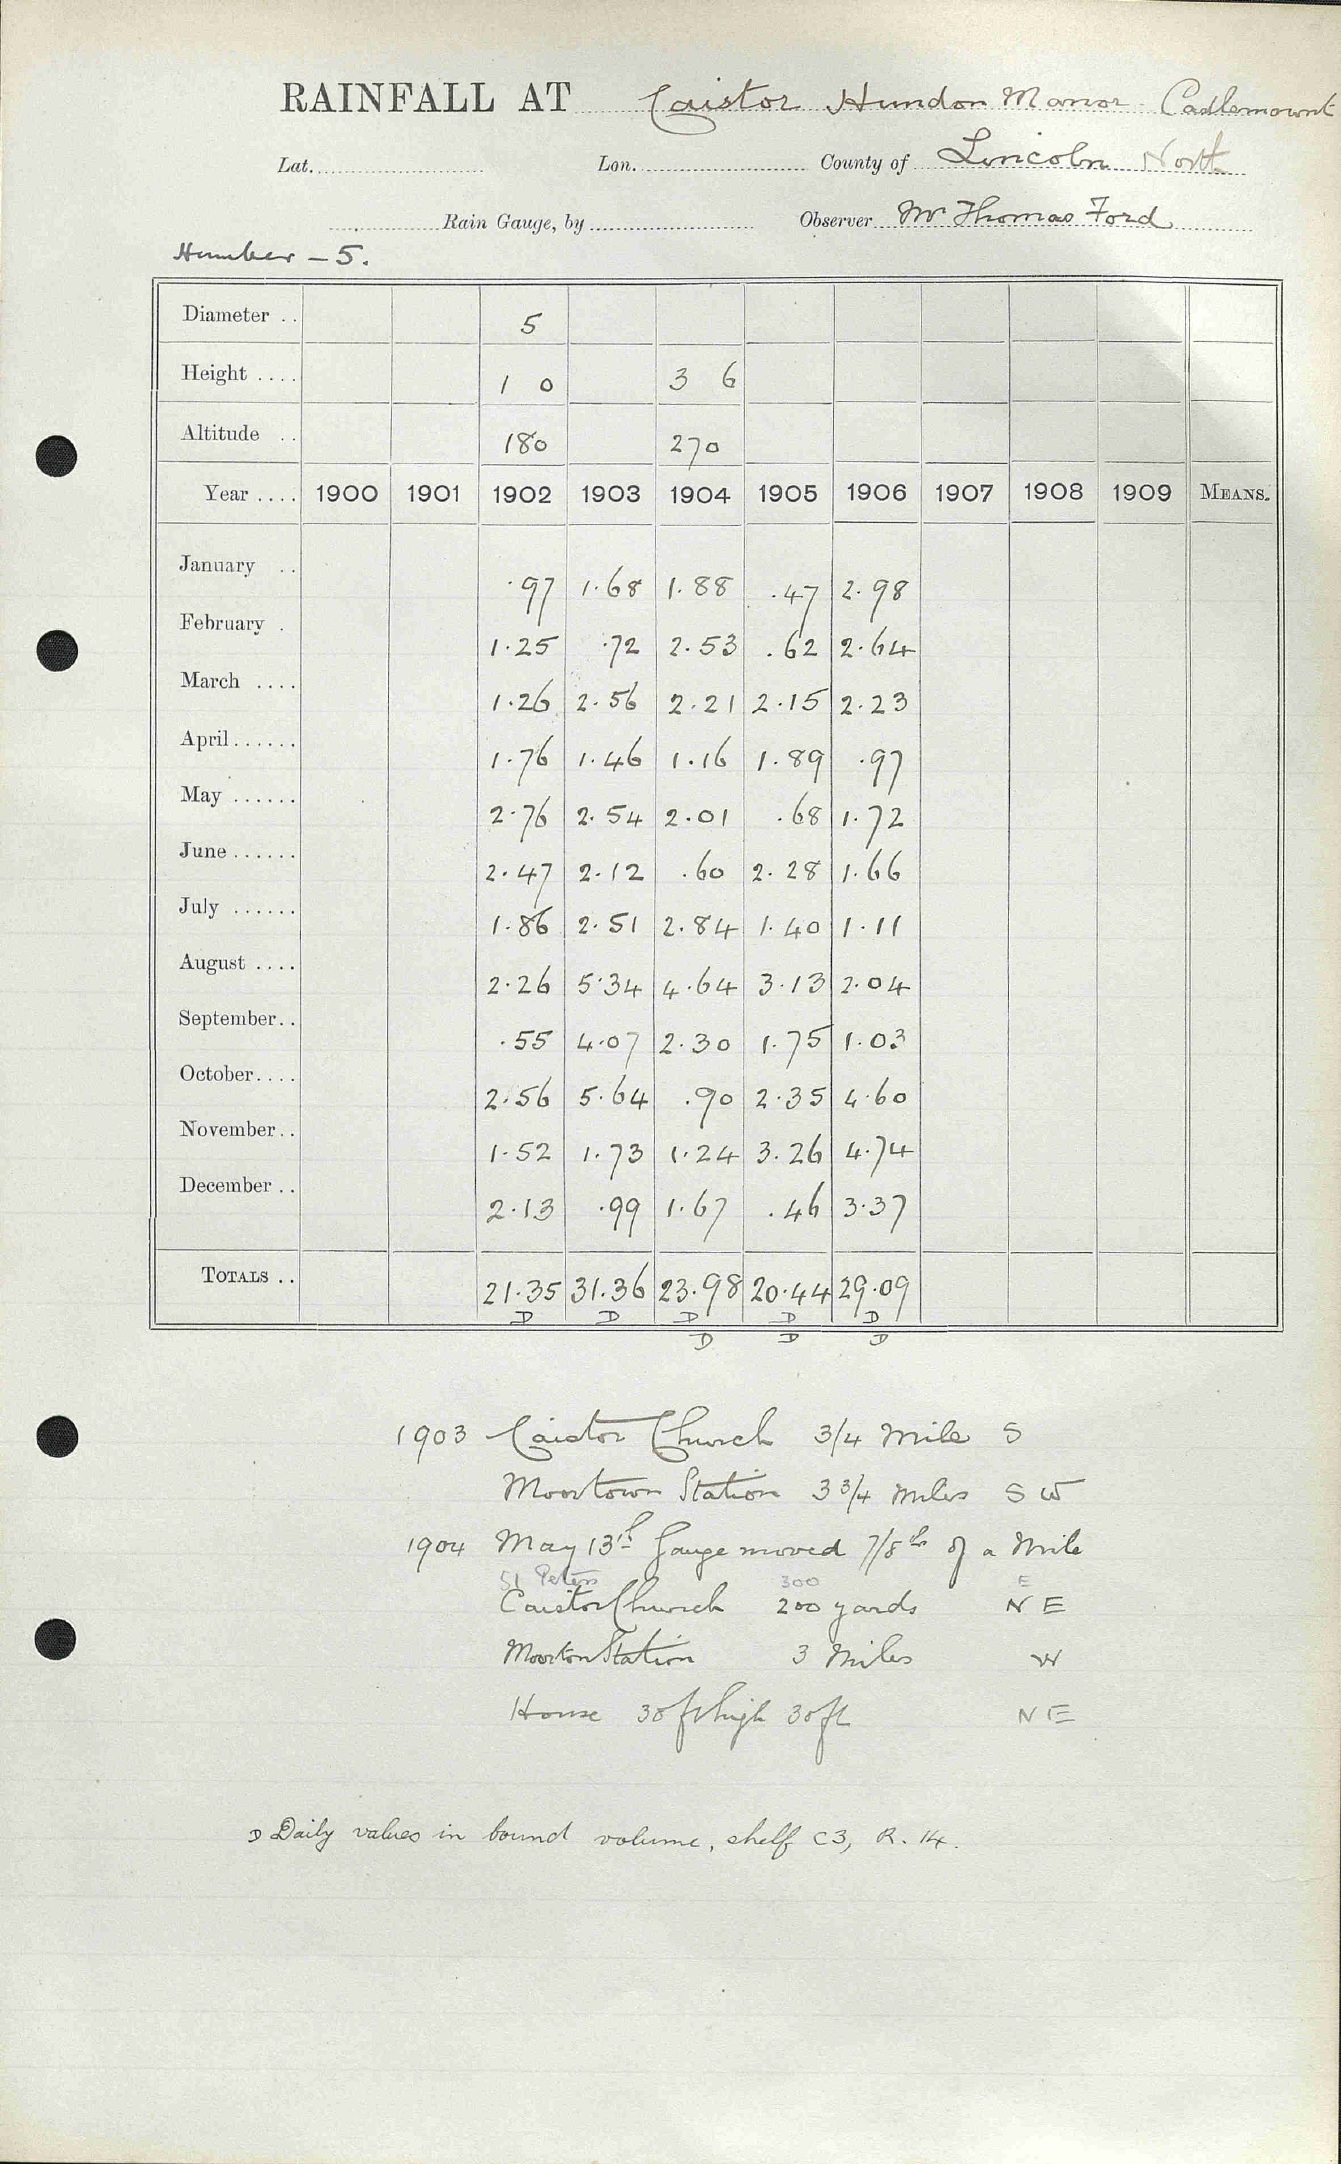 RAINFALL AT Caistor Hundon Manor Cadlemount
Lat. Lon. County of Lincoln North
Rain Gauge, by Observer Mr Thomas Ford
Humber - 5.
Diameter .. 5
Height .... 1 0 3 6
Altitude .. 180 270
Year .... 1900 1901 1902 1903 1904 1905 1906 1907 1908 1909 MEANS.
January .. .97 1.68 1.88 .47 2.98
February . 1.25 .72 2.53 .62 2.64
March .... 1.26 2.56 2.21 2.15 2.23
April...... 1.76 1.46 1.16 1.89 .97
May ...... 2.76 2.54 2.01 .68 1.72
June...... 2.47 2.12 .60 2.28 1.66
July ...... 1.86 2.51 2.84 1.40 1.11
August .... 2.26 5.34 4.64 3.13 2.04
September.. .55 4.07 2.30 1.75 1.03
October.... 2.56 5.64 .90 2.35 4.60
November.. 1.52 1.73 1.24 3.26 4.74
December .. 2.13 .99 1.67 .46 3.37
TOTALS .. 21.35 31.36 23.98 20.44 29.09
D D D D D
D D D
1903 Caistor Church 3/4 Mile S
Moortown Station 3 3/4 Miles S W
1904 May 13th Gauge moved 7/8th of a Mile
St Peters 300 E
Caistor Church 200 yards N E
Moorton Station 3 Miles W
House 30 ft high 30 ft N E
D Daily values in bound volume, shelf C3, R. 14.